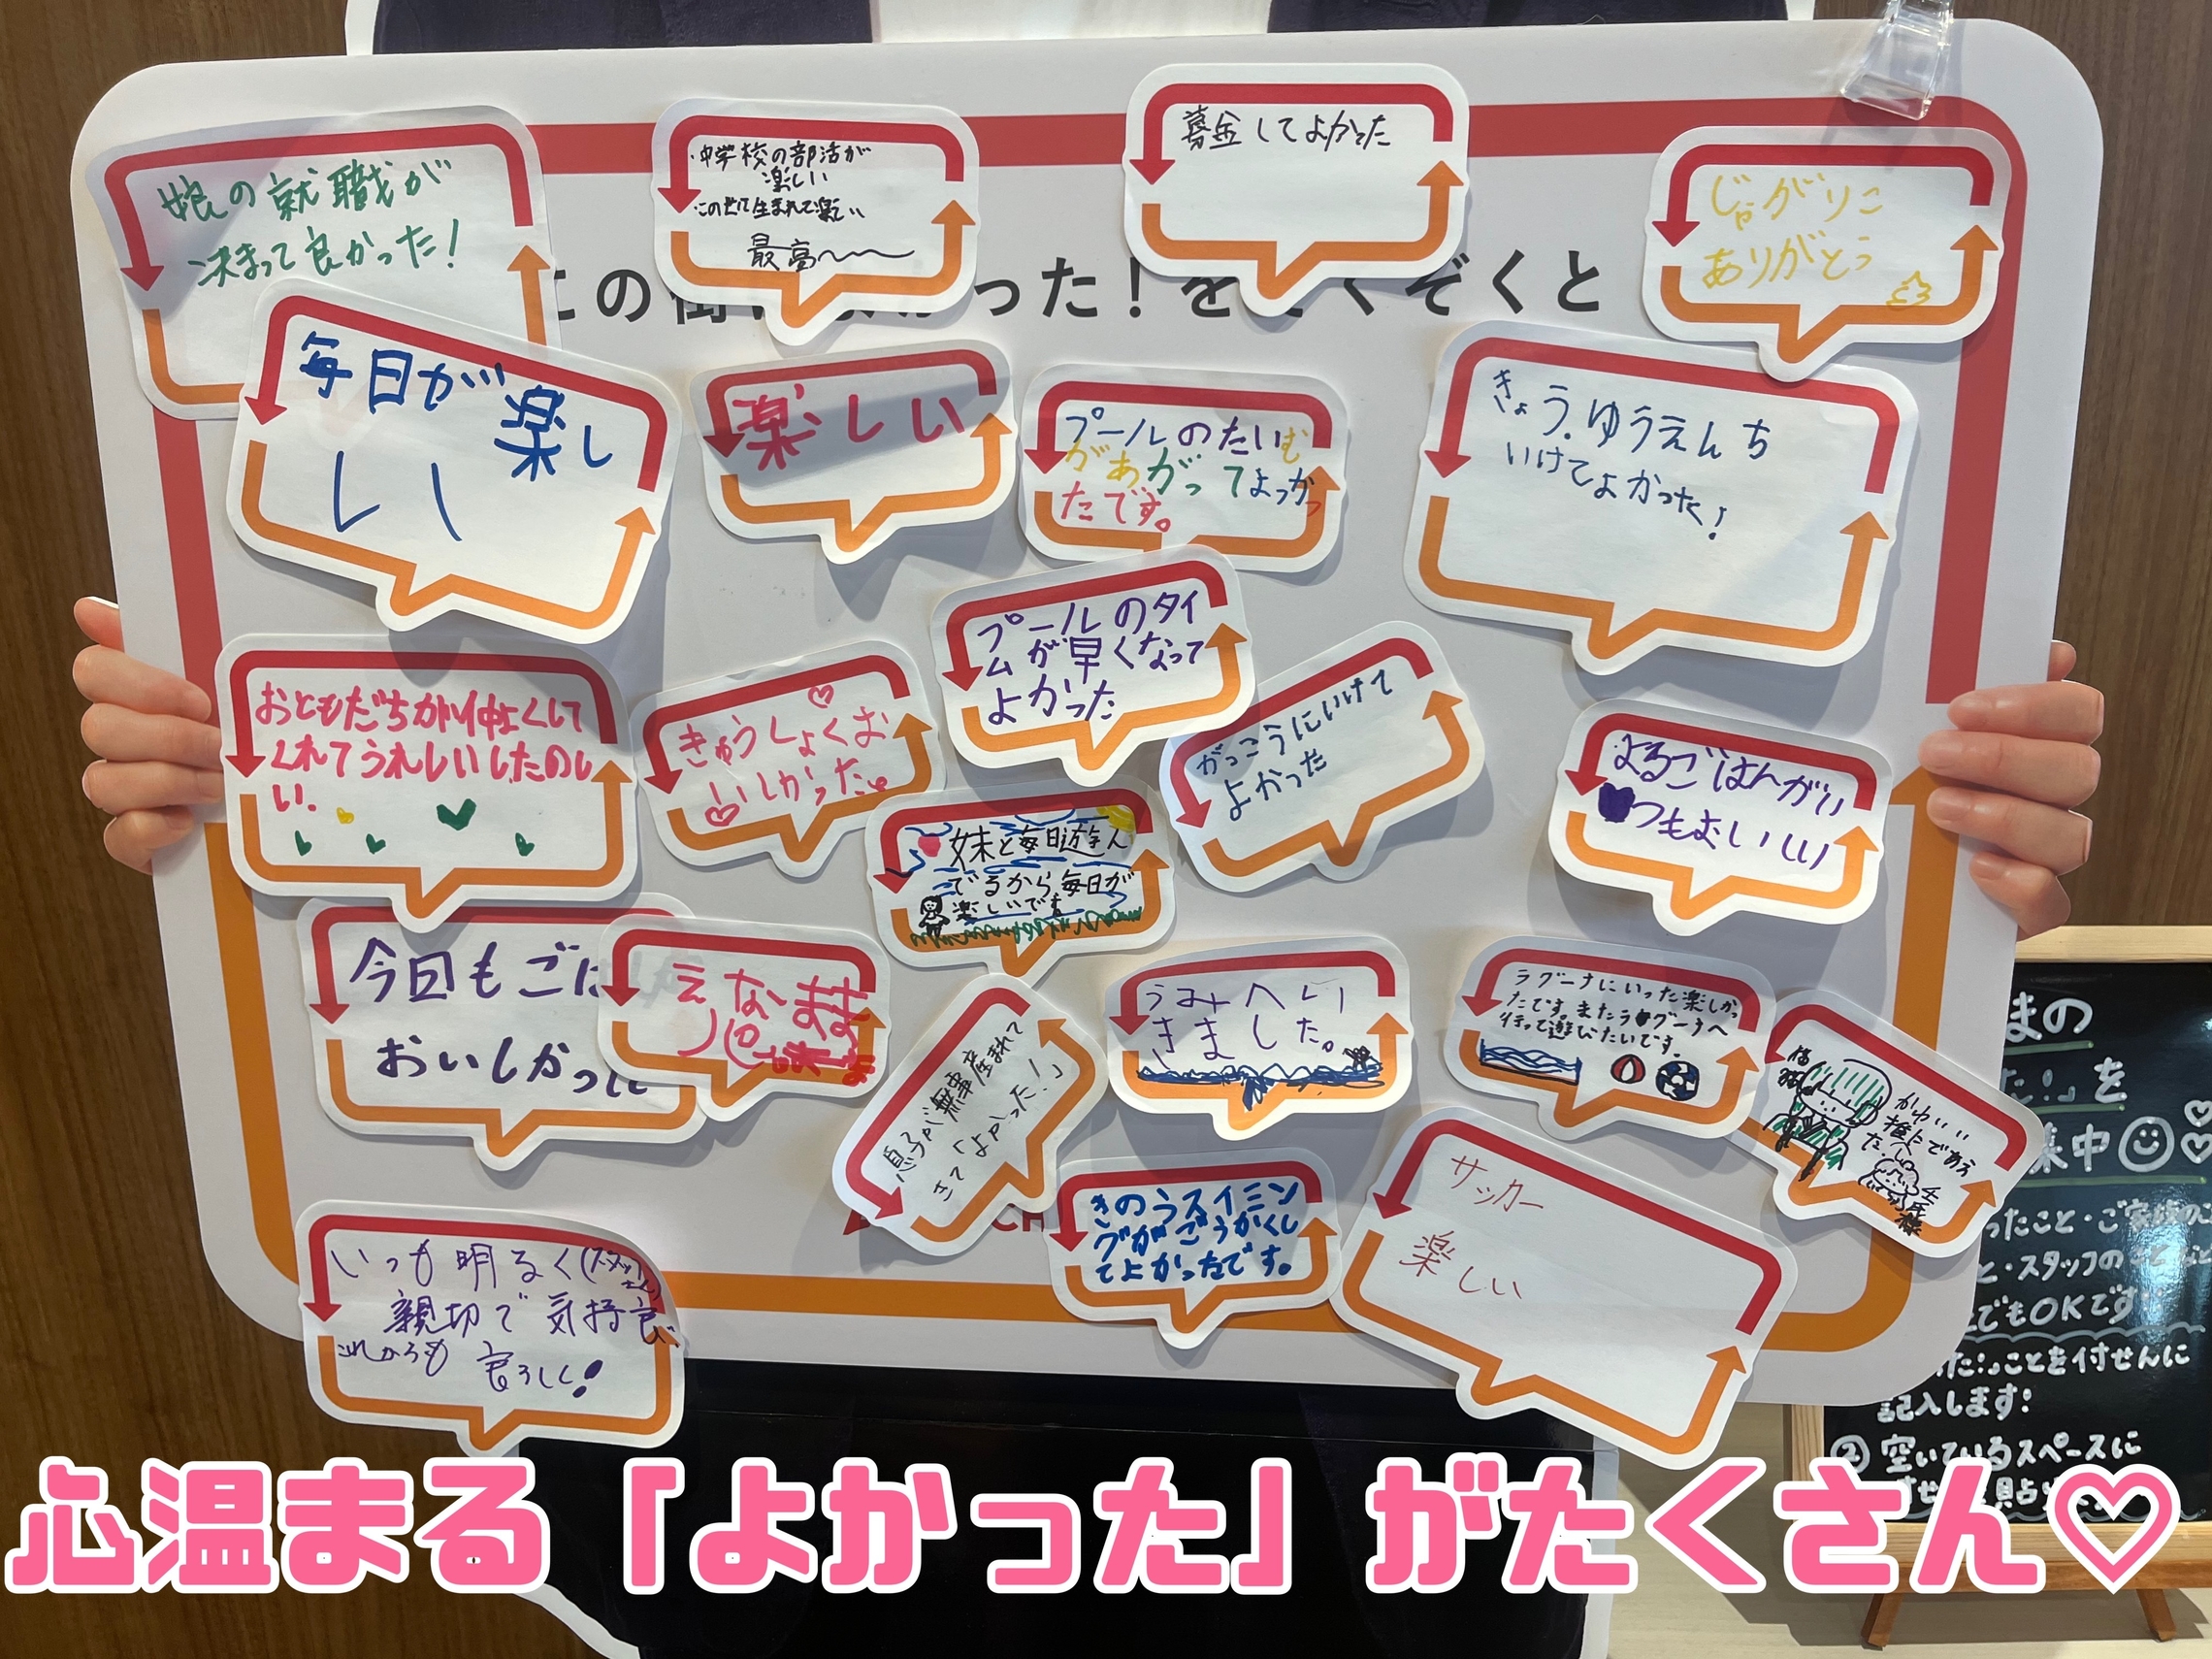 娘の就職が
決まって良かった！
・中学校の部活が
楽しい
・この世に生まれて楽しい
最高〜〜
募金してよかった
じゃがりこ
ありがとう
この街
った！を
くぞくと
毎日が楽し
しい
楽しい
プールのたいむ
があがってよっかっ
たです。
きょう.ゆうえんち
いけてよかった！
プールのタイ
ムが早くなって
よかった
おともだちが仲よくして
くれてうれしいしたのし
い.
きゅうしょくお
いしかった
がっこうにいけて
よかった
よるごはんがい
つもおいしい
妹と毎日遊ん
でるから毎日が
楽しいです
今回もごは
おいしかった
うみへい
きました。
ラグーナにいった楽しかっ
たです。またラグーナへ
行って遊びたいです。
息子が無事産まれて
きて「よかった！」
かわいい
推しにであえ
た
きのうスイミン
グがごうかくし
てよかったです。
サッカー
楽しい
いつも明るく(スタッフさん)
親切で気持良い
これからも
宜ろしく！
まの
た！」を
集中
ったこと・ご家族のこ
と・スタッフのこと
でもOKです
たことを付せんに
記入します！
② 空いているスペースに
心温まる「よかった」がたくさん♡